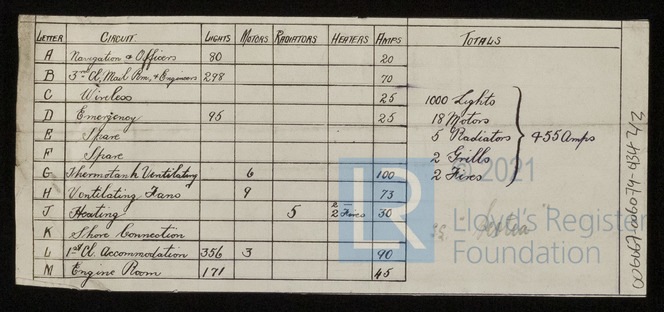 LETTER CIRCUIT LIGHTS MOTORS RADIATORS HEATERS AMPS TOTALS
A Navigation & Officers 80 20
B 3rd Cl, Mail Rm, & Engineers 298 70
C Wireless 25
D Emergency 95 25
E Spare
F Spare
G Thermotank Ventilating 6 100
H Ventilating Fans 9 73
J Heating 5 2 2 Fires 30
K Shore Connection
L 1st Cl. Accommodation 356 3 90
M Engine Room 171 45
1000 Lights
18 Motors
5 Radiators
2 Grills
2 Fires
455 Amps
LR
© 2021
Lloyd's Register
Foundation